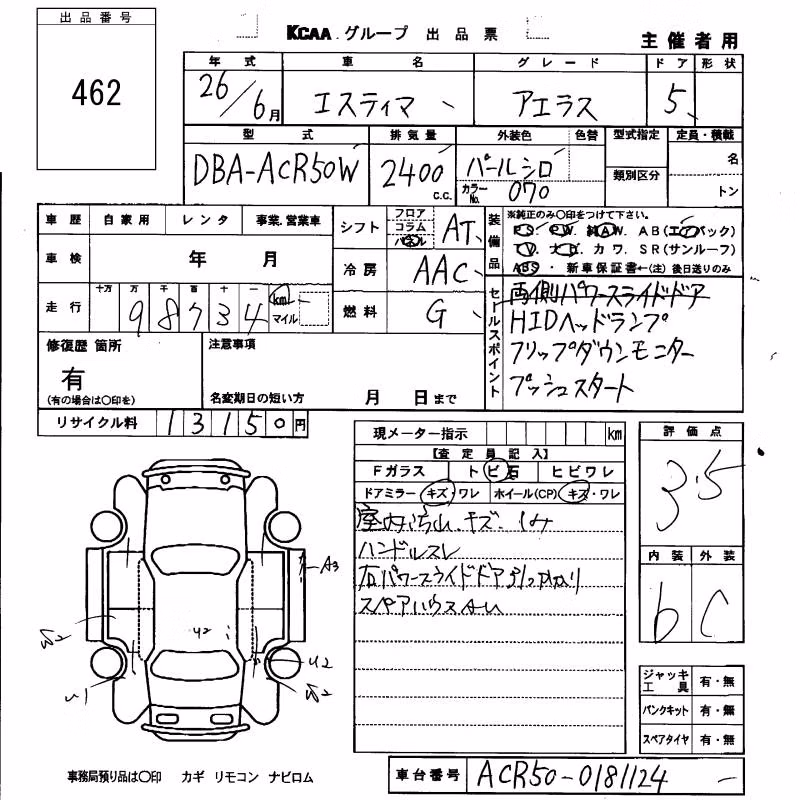 出品番号
462
KCAA グループ 出品票
主催者用
年式 車名 グレード ドア 形状
26/6月 エスティマ アエラス 5
型式 排気量 外装色 色替 型式指定 定員・積載
DBA-ACR50W 2400 C.C. パールシロ 類別区分 名
カラーNo. 070 トン
車歴 自家用 レンタ 事業.営業車
シフト フロア コラム パネル AT
車検 年 月
冷房 AAC
走行 十万 万 千 百 十 一
98734 km マイル
燃料 G
装備品
※純正のみ○印をつけて下さい。
PS. PW. 純AW. AB(エアバック)
TV. ナビ. カワ. SR(サンルーフ)
ABS・新車保証書←(注) 後日送りのみ
セールスポイント
両側パワースライドドア
HIDヘッドランプ
フリップダウンモニター
プッシュスタート
修復歴 箇所
有
(有の場合は○印を)
注意事項
名変期日の短い方 月 日まで
リサイクル料 13150円
現メーター指示 km
【査定員記入】
Fガラス トビ石 ヒビワレ
ドアミラー キズ・ワレ ホイール(CP) キズ・ワレ
室内汚れ.キズ.
ハンドルスレ
右パワースライドドア引っかかり
スペアハウス
評価点
3.5
内装 外装
b C
A3
W2
U2
U2
U1
W2
ジャッキ工具 有・無
パンクキット 有・無
スペアタイヤ 有・無
事務局預り品は○印 カギ リモコン ナビロム
車台番号 ACR50-0181124